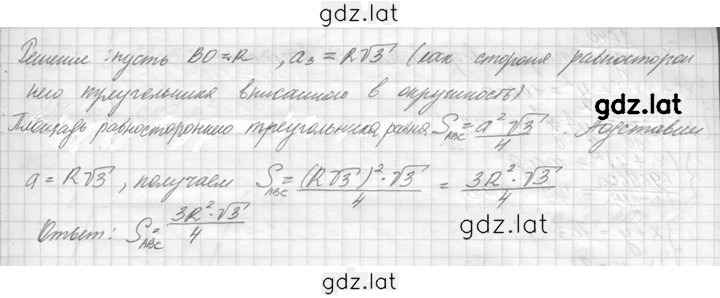 gdz.lat
Решение: пусть BO=R , a₃=R√3 (как сторона равносторон
него треугольника вписанного в окружность)
gdz.lat
Площадь равностороннего треугольника равна S_ABC = a²√3/4 . Подставим
a=R√3, получаем S_ABC = (R√3)²·√3/4 = 3R²·√3/4
Ответ: S_ABC = 3R²·√3/4
gdz.lat
gdz.lat